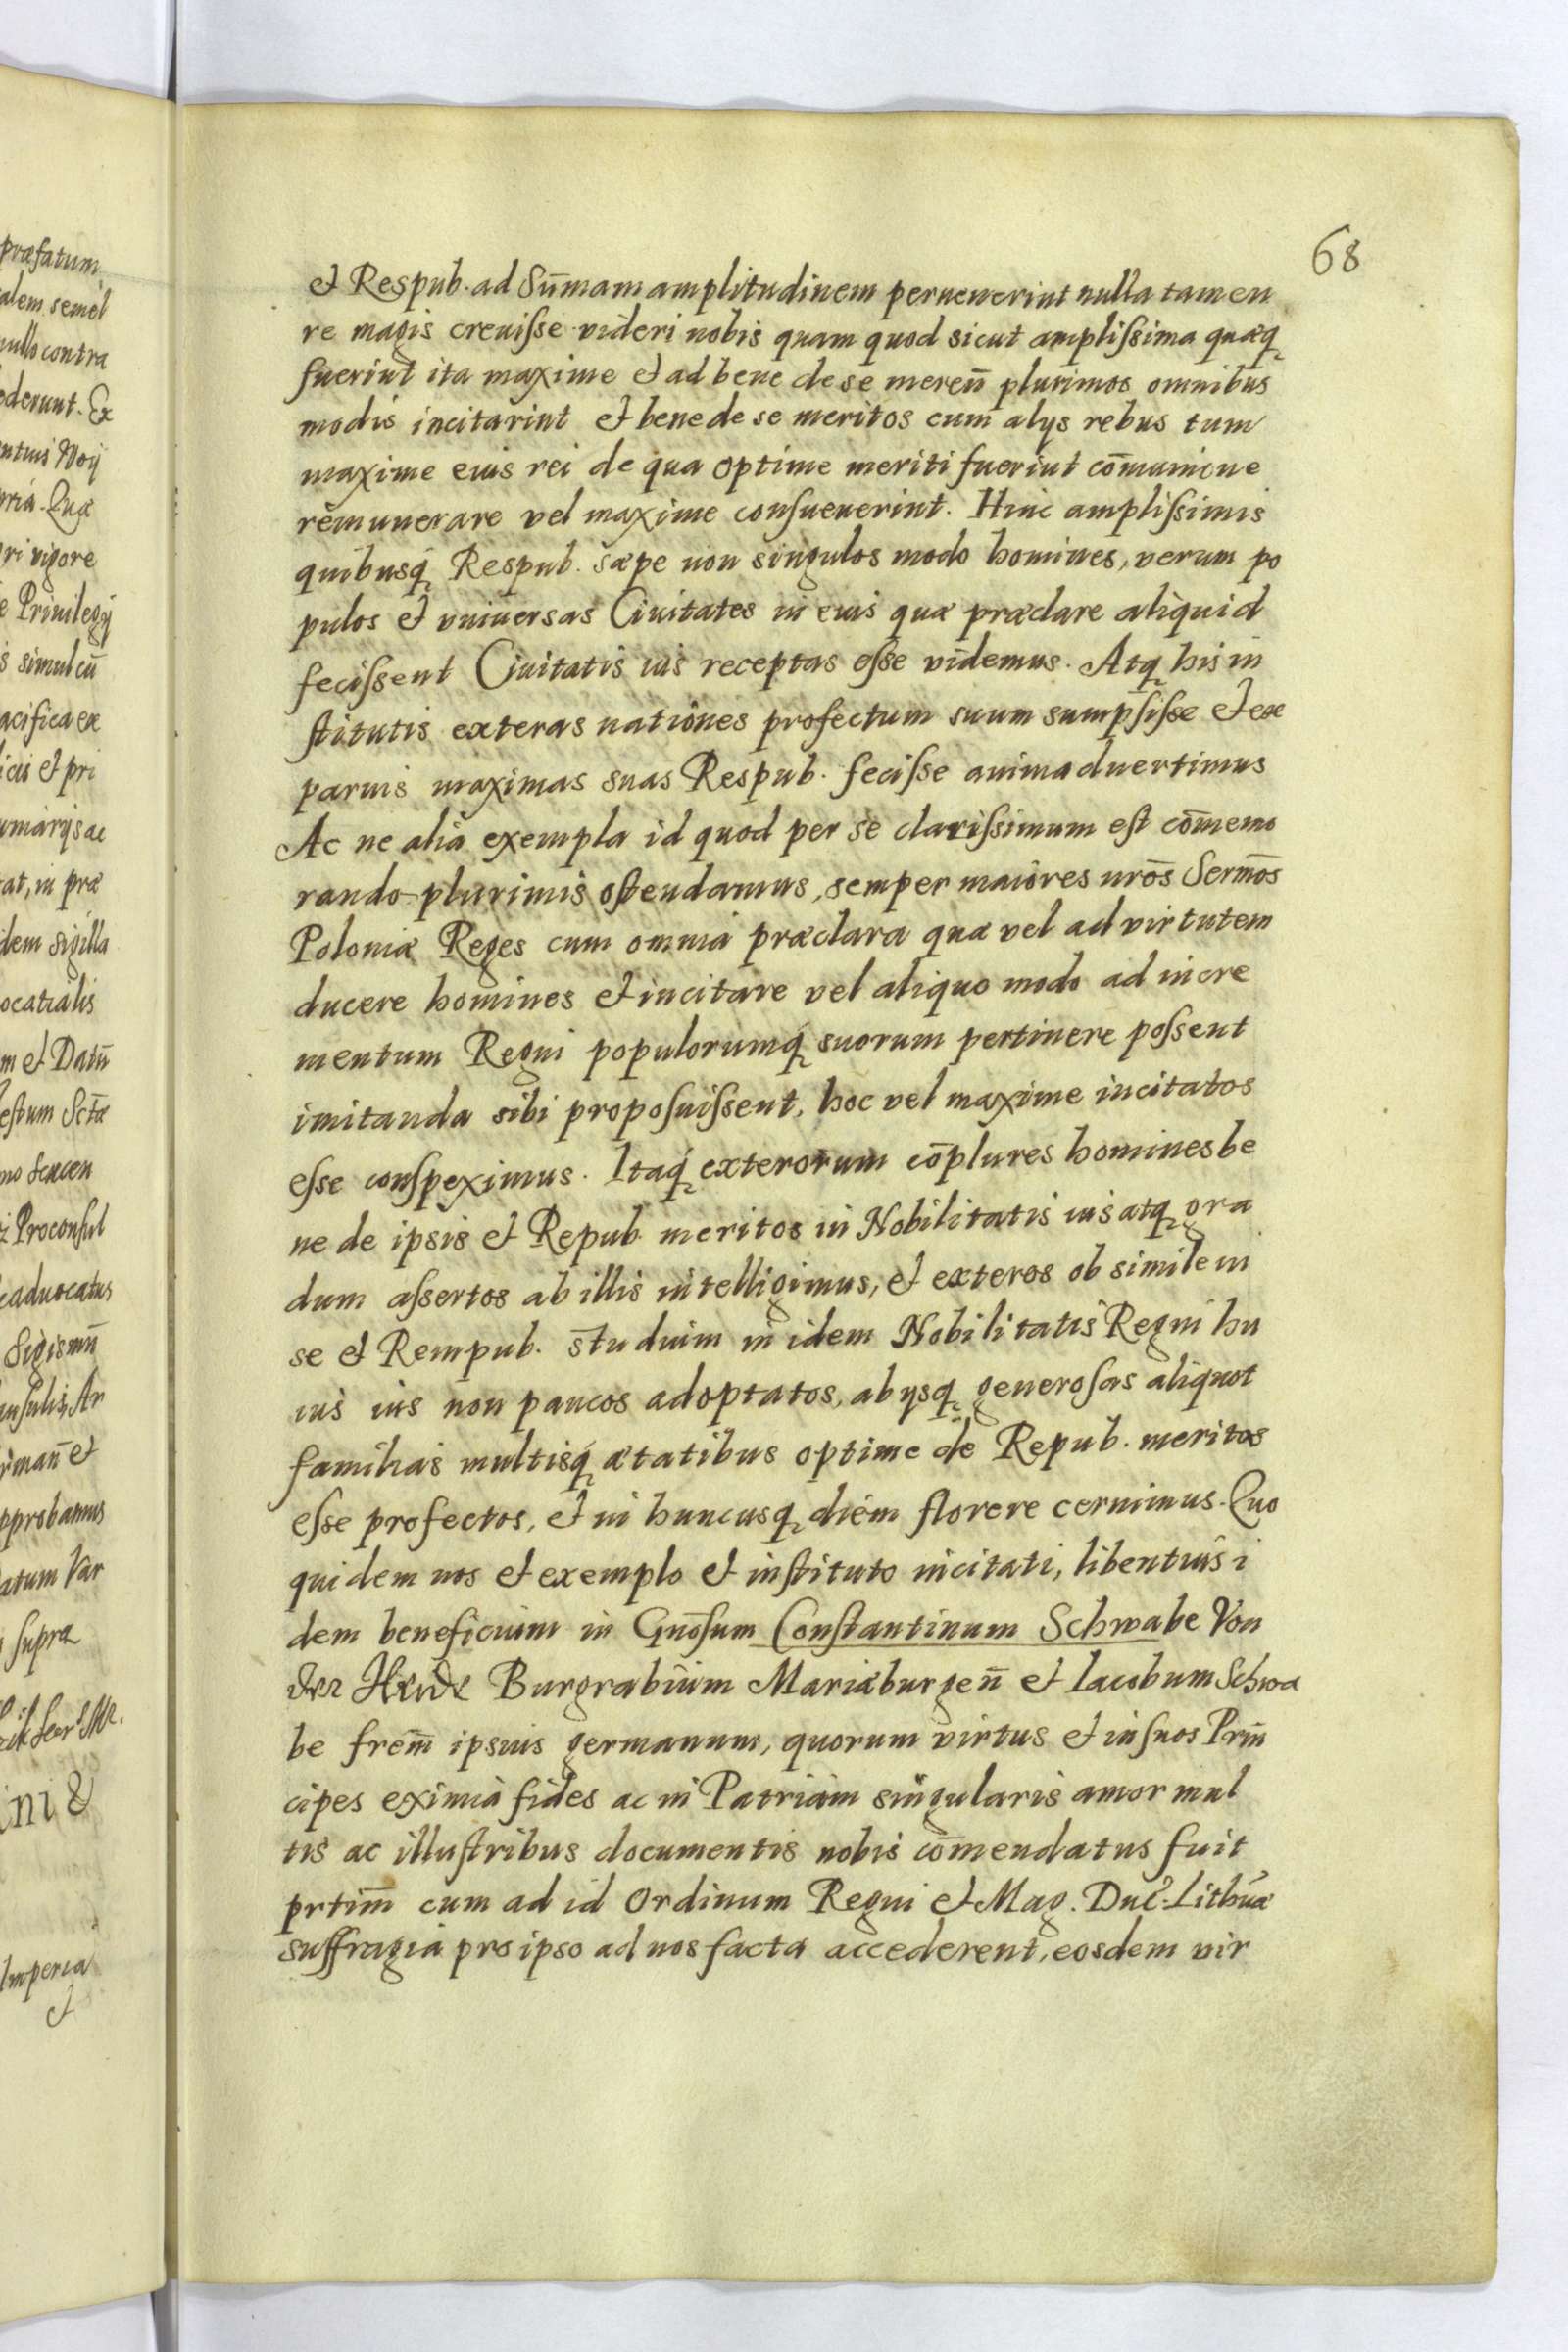 68
et Respub. ad Sum̄am amplitudinem peruenerint nulla tamen
re magis creuisse videri nobis quam quod sicut amplissima quæq̨
fuerint ita maxime et ad bene de se meren̄ plurimos omnibus
modis incitarint et bene de se meritos cum alys rebus tum
maxime eius rei de qua optime meriti fuerint com̄unione
remunerare vel maxime consueuerint. Hinc amplissimis
quibusq̨ Respub. sæpe non singulos modo homines, verum po
pulos et vniuersas Ciuitates in eius quæ præclare aliquid
fecissent Ciuitatis ius receptas esse videmus. Atq̨ his in
stitutis exteras nationes profectum suum sumpsisse et ex
paruis maximas suas Respub. fecisse animaduertimus
Ac ne alia exempla id quod per se clarissimum est com̄emo
rando plurimis ostendamus, semper maiores nrōs Sermōs
Poloniæ Reges cum omnia præclara quæ vel ad virtutem
ducere homines et incitare vel aliquo modo ad incre
mentum Regni populorumq̨ suorum pertinere possent
imitanda sibi proposuissent, hoc vel maxime incitatos
esse conspeximus. Itaq̨ exterorum cōplures homines be
ne de ipsis et Repub. meritos in Nobilitatis ius atq̨ gra
dum assertos ab illis intelligimus, et exteros ob similem
se et Rempub. studium in idem Nobilitatis Regni hu
ius ius non paucos adoptatos, ab ysq̨ generosas aliquot
familias multisq̨ ætatibus optime de Repub. meritas
esse profectos, et in huncusq̨ diem florere cernimus. Quo
quidem nos et exemplo et instituto incitati, libentius i
dem beneficium in Gnōsum Constantinum Schwabe Von
der Heide Burgrabium Mariæburgen̄ et Iacobum Schwa
be frem̄ ipsius germanum, quorum virtus et in suos Prin̄
cipes eximia fides ac in Patriam singularis amor mul
tis ac illustribus documentis nobis com̄endatus fuit
prtim̄ cum ad id Ordinum Regni et Mag. Duc. Lithuæ
suffragia pro ipso ad nos facta accederent, eosdem vir